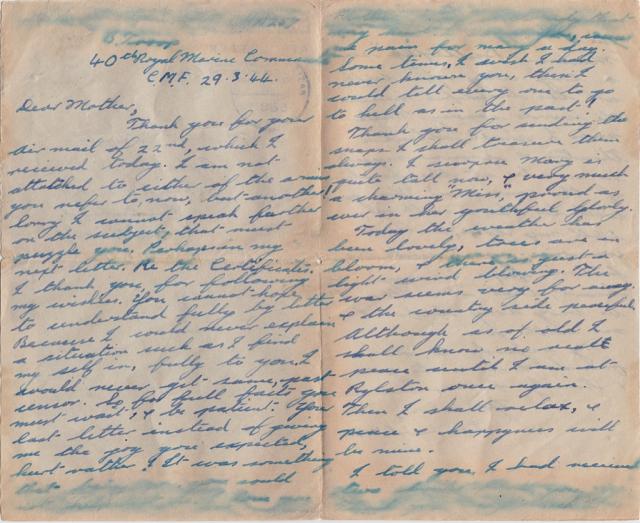 B Troop
40th Royal Marine Commando
C.M.F. 29.3.44.
Dear Mother,
Thank you for your
Air mail of 22nd, which I
received today. I am not
attatched to either of the armies
you refer to, now, but another!
Sorry I cannot speak further
on the subject, that must
puzzle you. Perhaps in my
next letter. Re the Certificates.
I thank you, for following
my wishes. You cannot hope
to understand fully by letter
Because I could never explain
a situation such as I find
my self in, fully to you, I
would never get same, past
censor. So for full facts you
must wait, & be patient. Your
last letter instead of giving
me the joy you expected,
hurt rather! It was something
could
pain for many a day.
Some times, I wish I had
never known you, then I
could tell every one to go
to hell as in the past!
Thank you for sending the
snaps I shall treasure them
always. I suppose Mary is
quite tall now, & very much
a charming "Miss", proud as
ever in her youthful glory.
Today the weather has
been lovely, trees are in
bloom, & there is just a
light wind blowing. The
war seems very far away.
& the country side peaceful
Although as of old I
shall know no real
peace until I am at
Rylston once again.
Then I shall relax, &
peace & happyness will
be mine.
I told you I had received
two